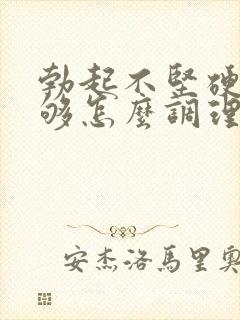 勃起不坚硬
够怎麽調理
安杰洛馬里奧